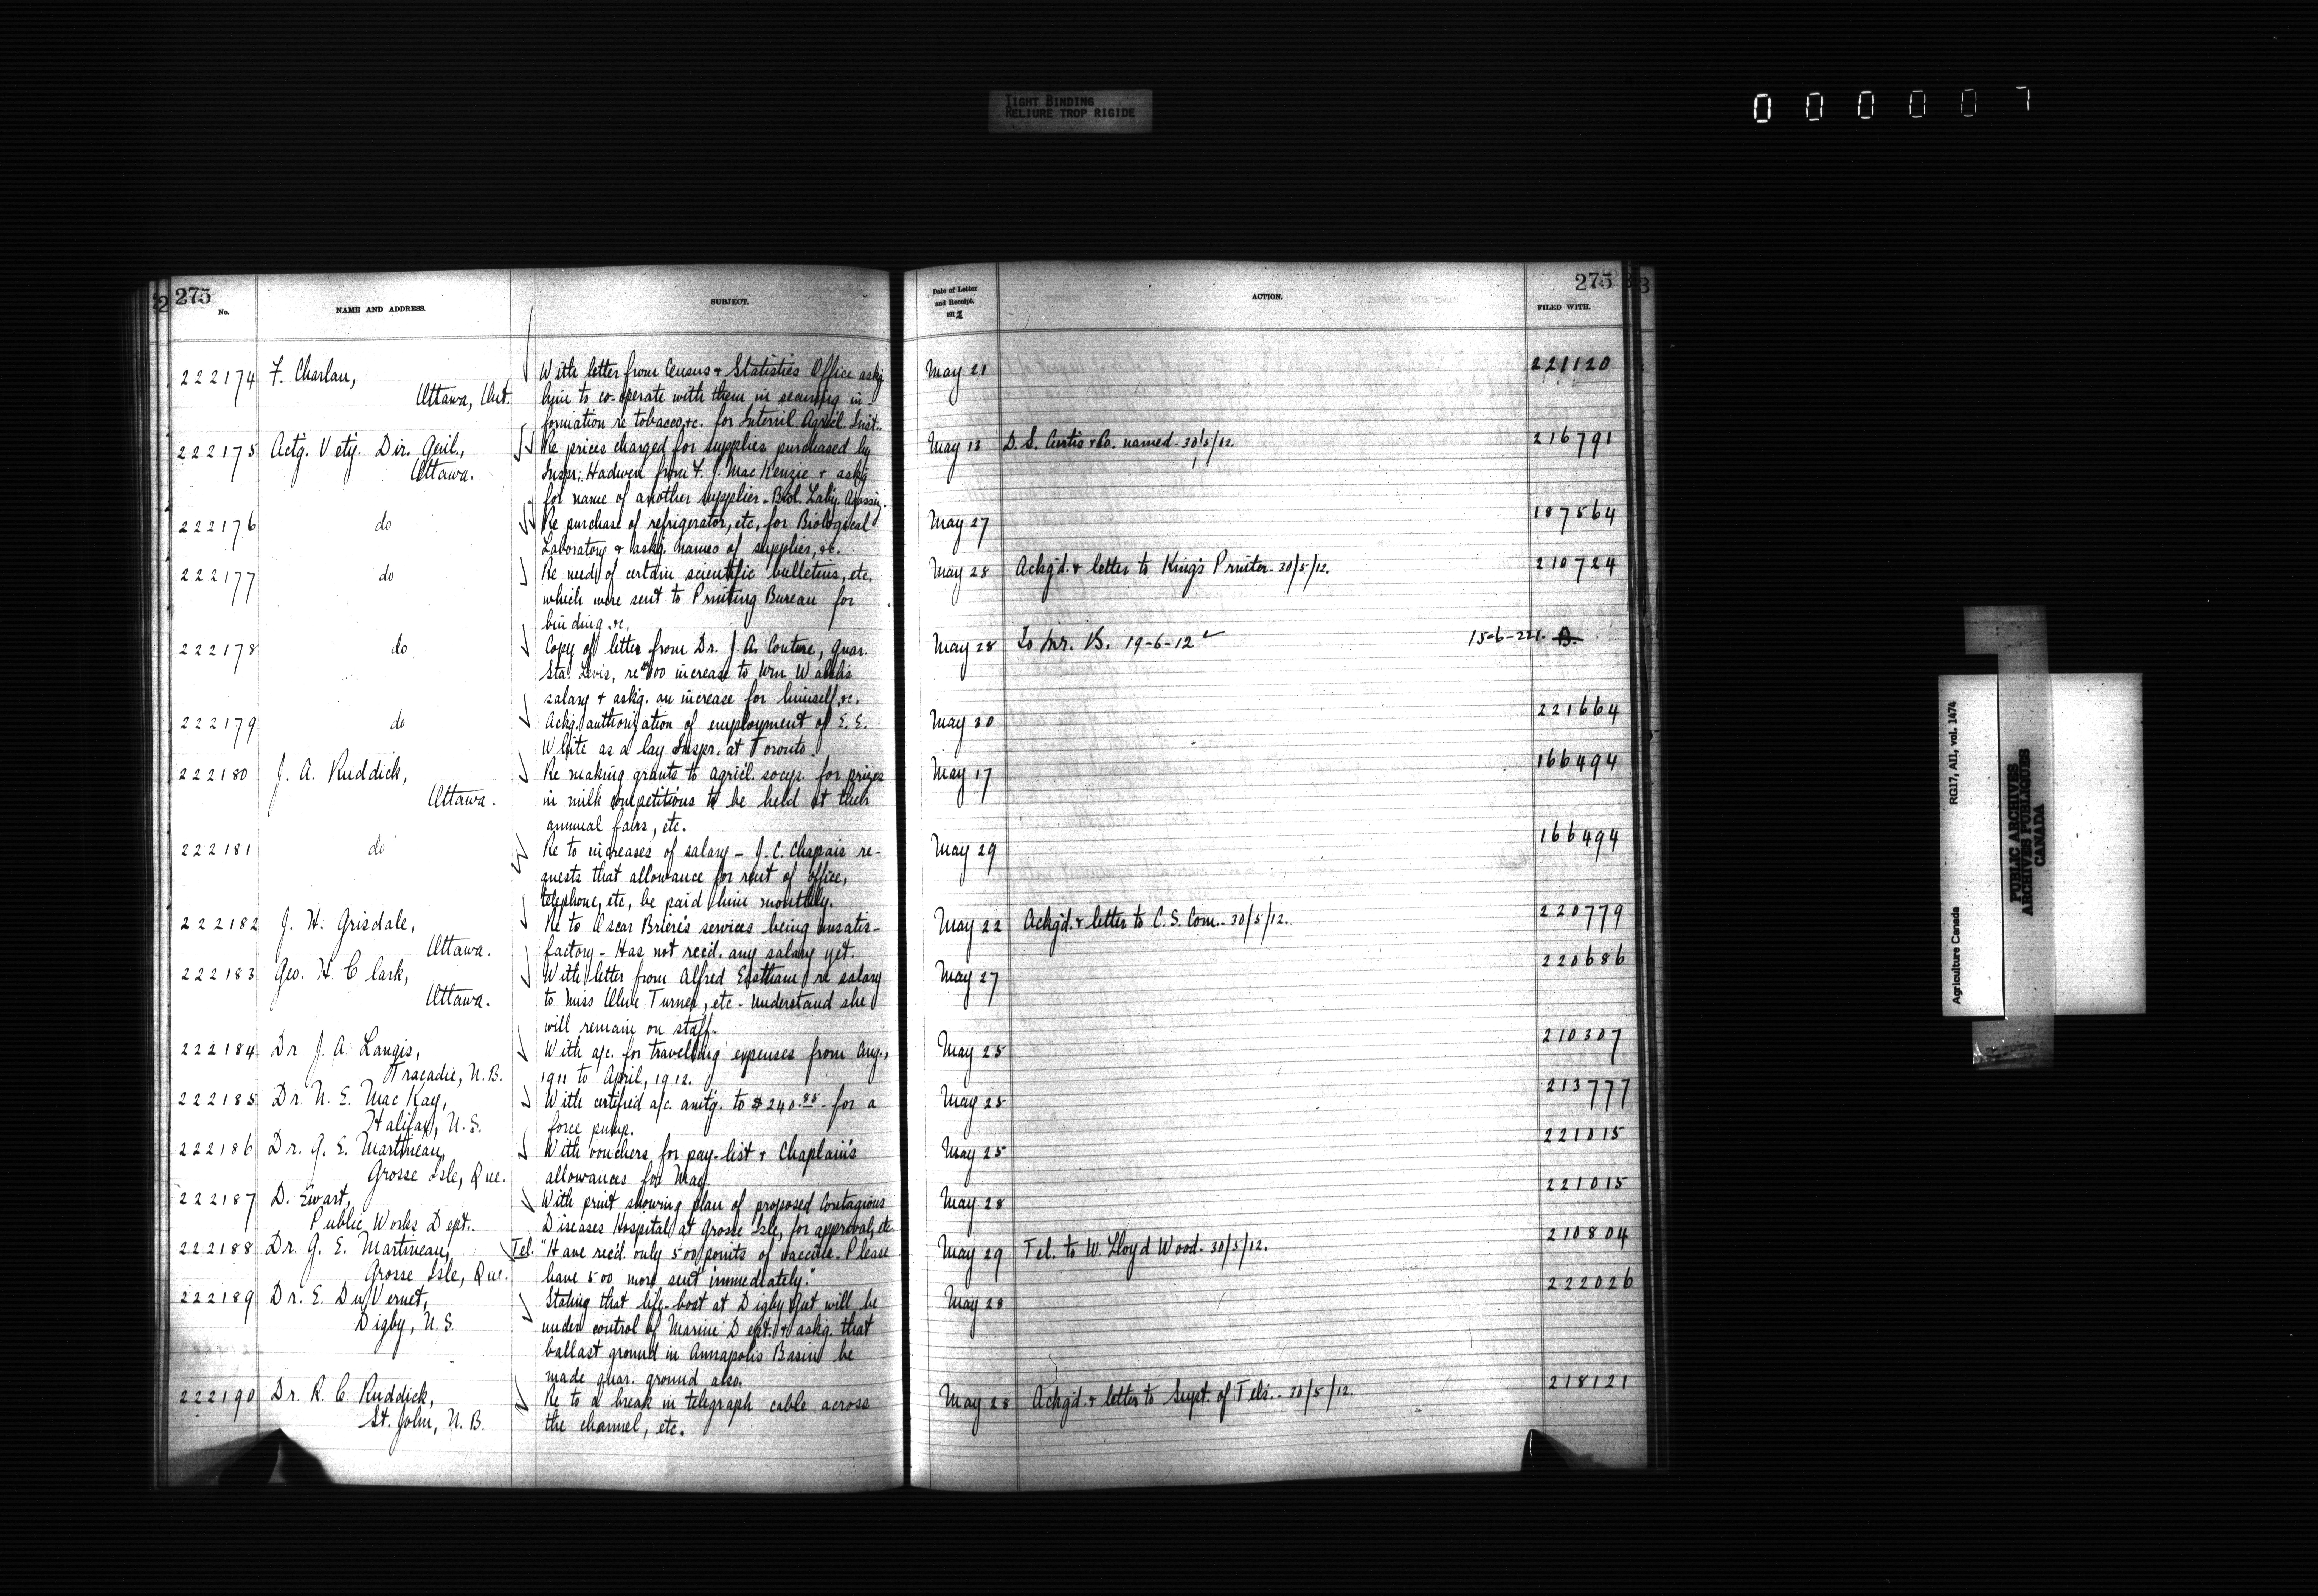 TIGHT BINDING
RELIURE TROP RIGIDE
0 0 0 0 0 7
275
No.
NAME AND ADDRESS.
SUBJECT.
222174 F. Charlan,
Ottawa, Ont.
With letter from Census & Statistics Office askg.
him to co-operate with them in securing in-
formation re tobacco, &c. for Internl. Agricl. Inst.
222175 Actg. Vety. Dir. Genl.,
Ottawa.
Re prices charged for supplies purchased by
Inspr. Hadwen from F. J. MacKenzie & askg
for name of another supplier. Biol. Laby. Agassiz.
222176 do
Re purchase of refrigerator, etc, for Biological
Laboratory & askg. names of supplier, &c.
222177 do
Re need of certain scientific bulletins, etc.
which were sent to Printing Bureau for
binding, &c.
222178 do
Copy of letter from Dr. J. A. Couture, Quar.
Sta. Levis, re $100 increase to Wm Walsh's
salary & askg. an increase for himself, &c.
222179 do
Ackg. authorization of employment of E. E.
White as a lay Inspr. at Toronto.
222180 J. A. Ruddick,
Ottawa.
Re making grants to agricl. socys. for prizes
in milk competitions to be held at their
annual fairs, etc.
222181 do
Re to increases of salary - J. C. Chapais re-
quests that allowance for rent of office,
telephone, etc, be paid him monthly.
222182 J. H. Grisdale,
Ottawa.
Re to Oscar Briere's services being unsatis-
factory - Has not recd. any salary yet.
222183 Geo. H. Clark,
Ottawa.
With letter from Alfred Eastham re salary
to Miss Olive Turner, etc - Understand she
will remain on staff.
222184 Dr J. A. Langis,
Tracadie, N.B.
With a/c. for travelling expenses from Aug.,
1911 to April, 1912.
222185 Dr. N. E. MacKay,
Halifax, N.S.
With certified a/c. amtg. to $240.88 for a
force pump.
222186 Dr. G. E. Martineau,
Grosse Isle, Que.
With vouchers for pay-list & Chaplain's
allowances for May.
222187 D. Ewart,
Public Works Dept.
With print showing plan of proposed Contagious
Diseases Hospital at Grosse Isle, for approval, etc.
222188 Dr. G. E. Martineau,
Grosse Isle, Que.
Tel. "Have recd. only 500 points of vaccine. Please
have 500 more sent immediately."
222189 Dr. E. DuVernet,
Digby, N.S.
Stating that life-boat at Digby Gut will be
under control of Marine Dept. & askg. that
ballast ground in Annapolis Basin be
made quar. ground also.
222190 Dr. R. C. Ruddick,
St. John, N.B.
Re to a break in telegraph cable across
the channel, etc.
Date of Letter
and Receipt,
1912
ACTION.
275
FILED WITH.
May 21 221120
May 13 D. S. Curtis & Co. named - 30/5/12. 216791
May 27 187564
May 28 Ackg'd. & letter to King's Printer - 30/5/12. 210724
May 28 To Mr. B. 19-6-12 15-6-221. B.
May 30 221664
May 17 166494
May 29 166494
May 22 Ackg'd. & letter to C. S. Com. - 30/5/12. 220779
May 27 220686
May 25 210307
May 25 213777
May 25 221015
May 28 221015
May 29 Tel. to W. Lloyd Wood - 30/5/12. 210804
May 28 222026
May 28 Ackg'd. & letter to Supt. of Tels. - 30/5/12. 218121
Agriculture Canada RG17, AII, vol. 1474
PUBLIC ARCHIVES
ARCHIVES PUBLIQUES
CANADA